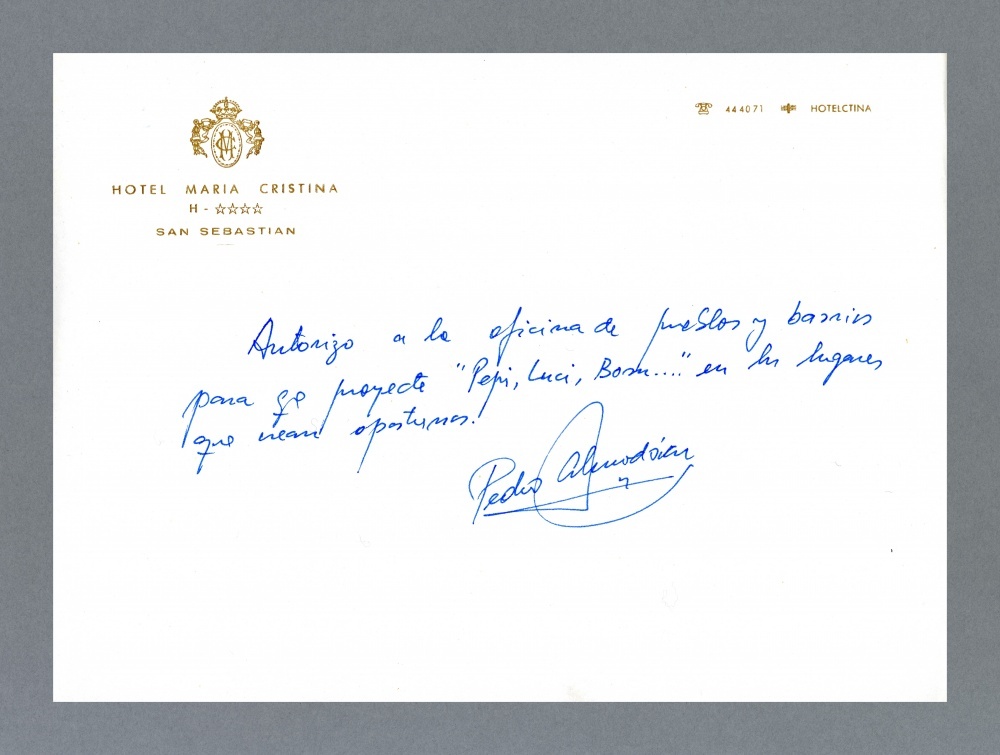 HOTEL MARIA CRISTINA
H - ☆☆☆☆
SAN SEBASTIAN
444071 HOTELCTINA
Autorizo a la oficina de pueblos y barrios
para qe proyecte "Pepi, Luci, Bom...." en los lugares
que vean oportunos.
Pedro Almodóvar